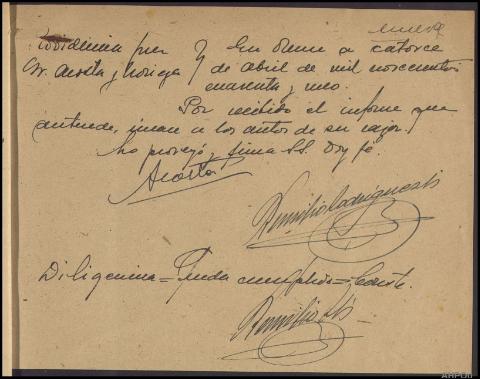 Providencia Juez } En Orense a catorce
Sr. Acosta y Noriega } de abril de mil novecientos
cuarenta y uno.
Por recibido el informe que
antecede, únase a los autos de su razón.
Lo proveyó y firma SS. Doy fe.
Acosta
Remilio Rodríguez
Diligencia = Queda cumplido = Conste.
Remilio
ARPOU